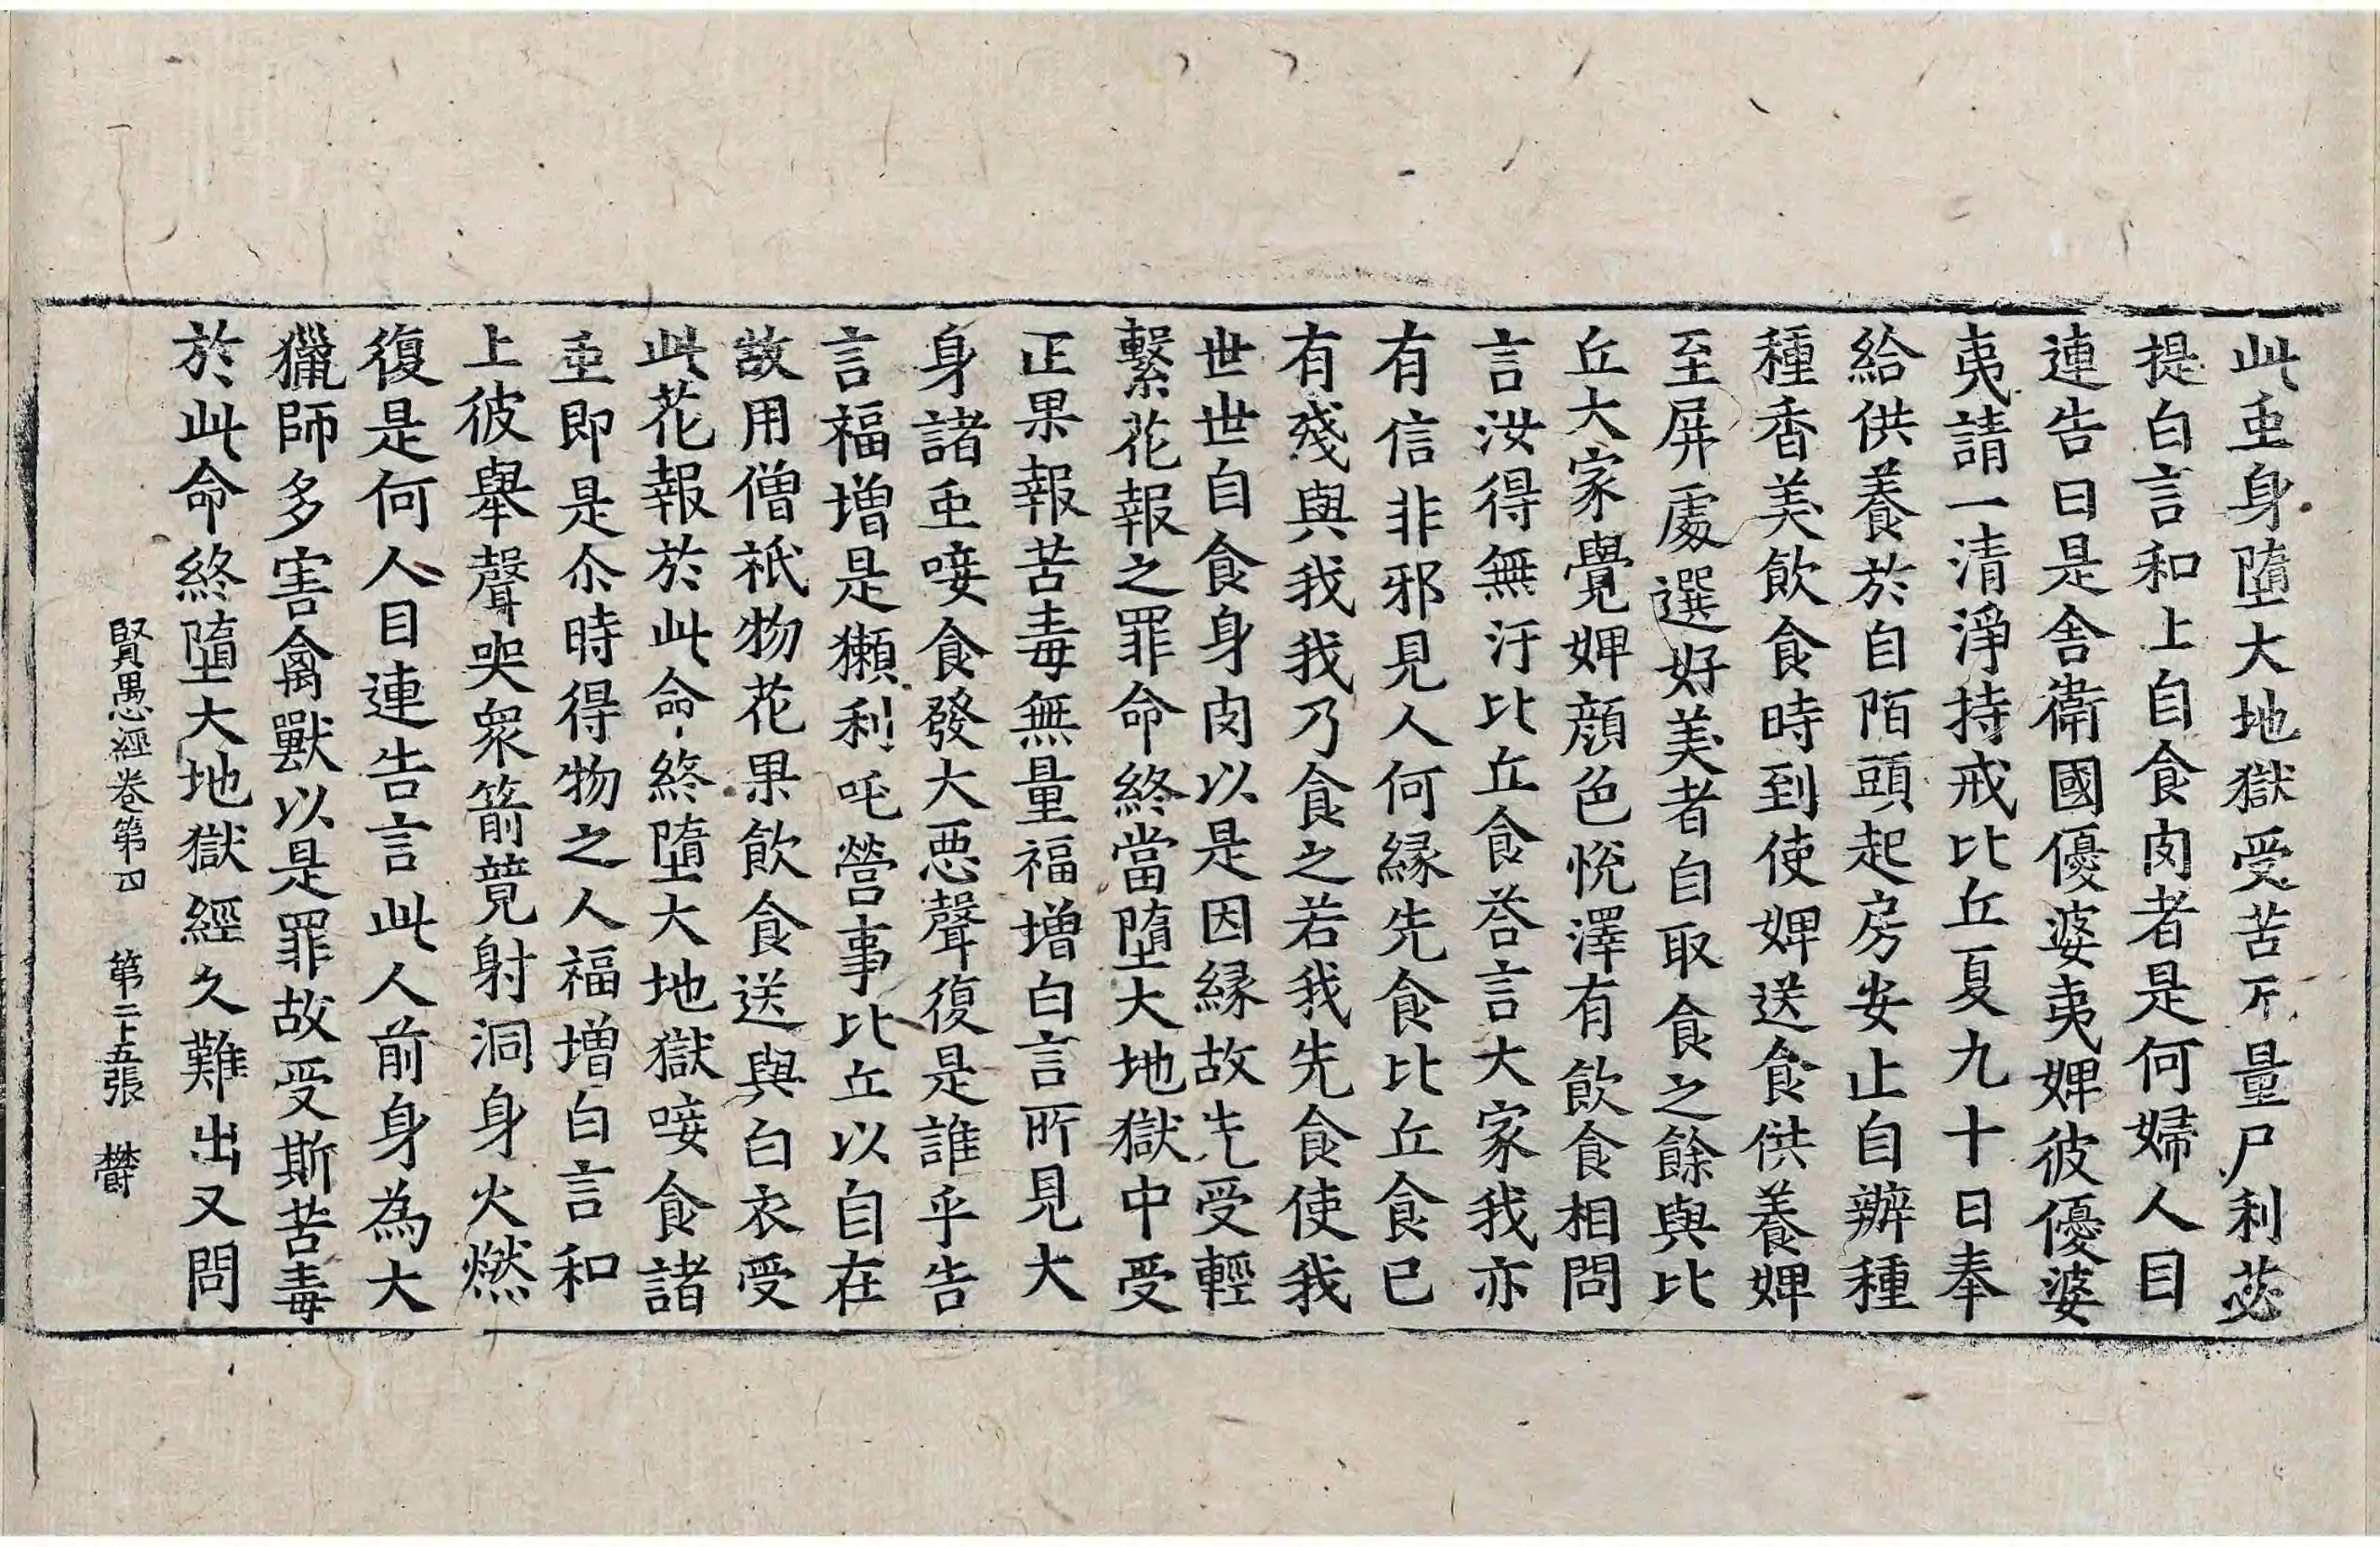 此䖝身墮大地獄受苦不量尸利苾
提白言和上自食肉者是何婦人目
連告曰是舍衛國優婆夷婢彼優婆
夷請一清淨持戒比丘夏九十日奉
給供養於自陌頭起房安止自辦種
種香美飲食時到使婢送食供養婢
至屏處選好美者自取食之餘與比
丘大家覺婢顔色悅澤有飲食相問
言汝得無汙比丘食荅言大家我亦
有信非邪見人何縁先食比丘食已
有殘與我我乃食之若我先食使我
世世自食身肉以是因縁故先受輕
繫花報之罪命終當墮大地獄中受
正果報苦毒無量福增白言所見大
身諸䖝唼食發大悪聲復是誰乎告
言福增是獺利吒營事比丘以自在
故用僧祇物花果飲食送與白衣受
此花報於此命終墮大地獄唼食諸
䖝即是尒時得物之人福增白言和
上彼舉聲哭衆箭競射洞身火燃
復是何人目連告言此人前身為大
獵師多害禽獸以是罪故受斯苦毒
於此命終墮大地獄經久難出又問
賢愚經卷第四 第二十五張 欝